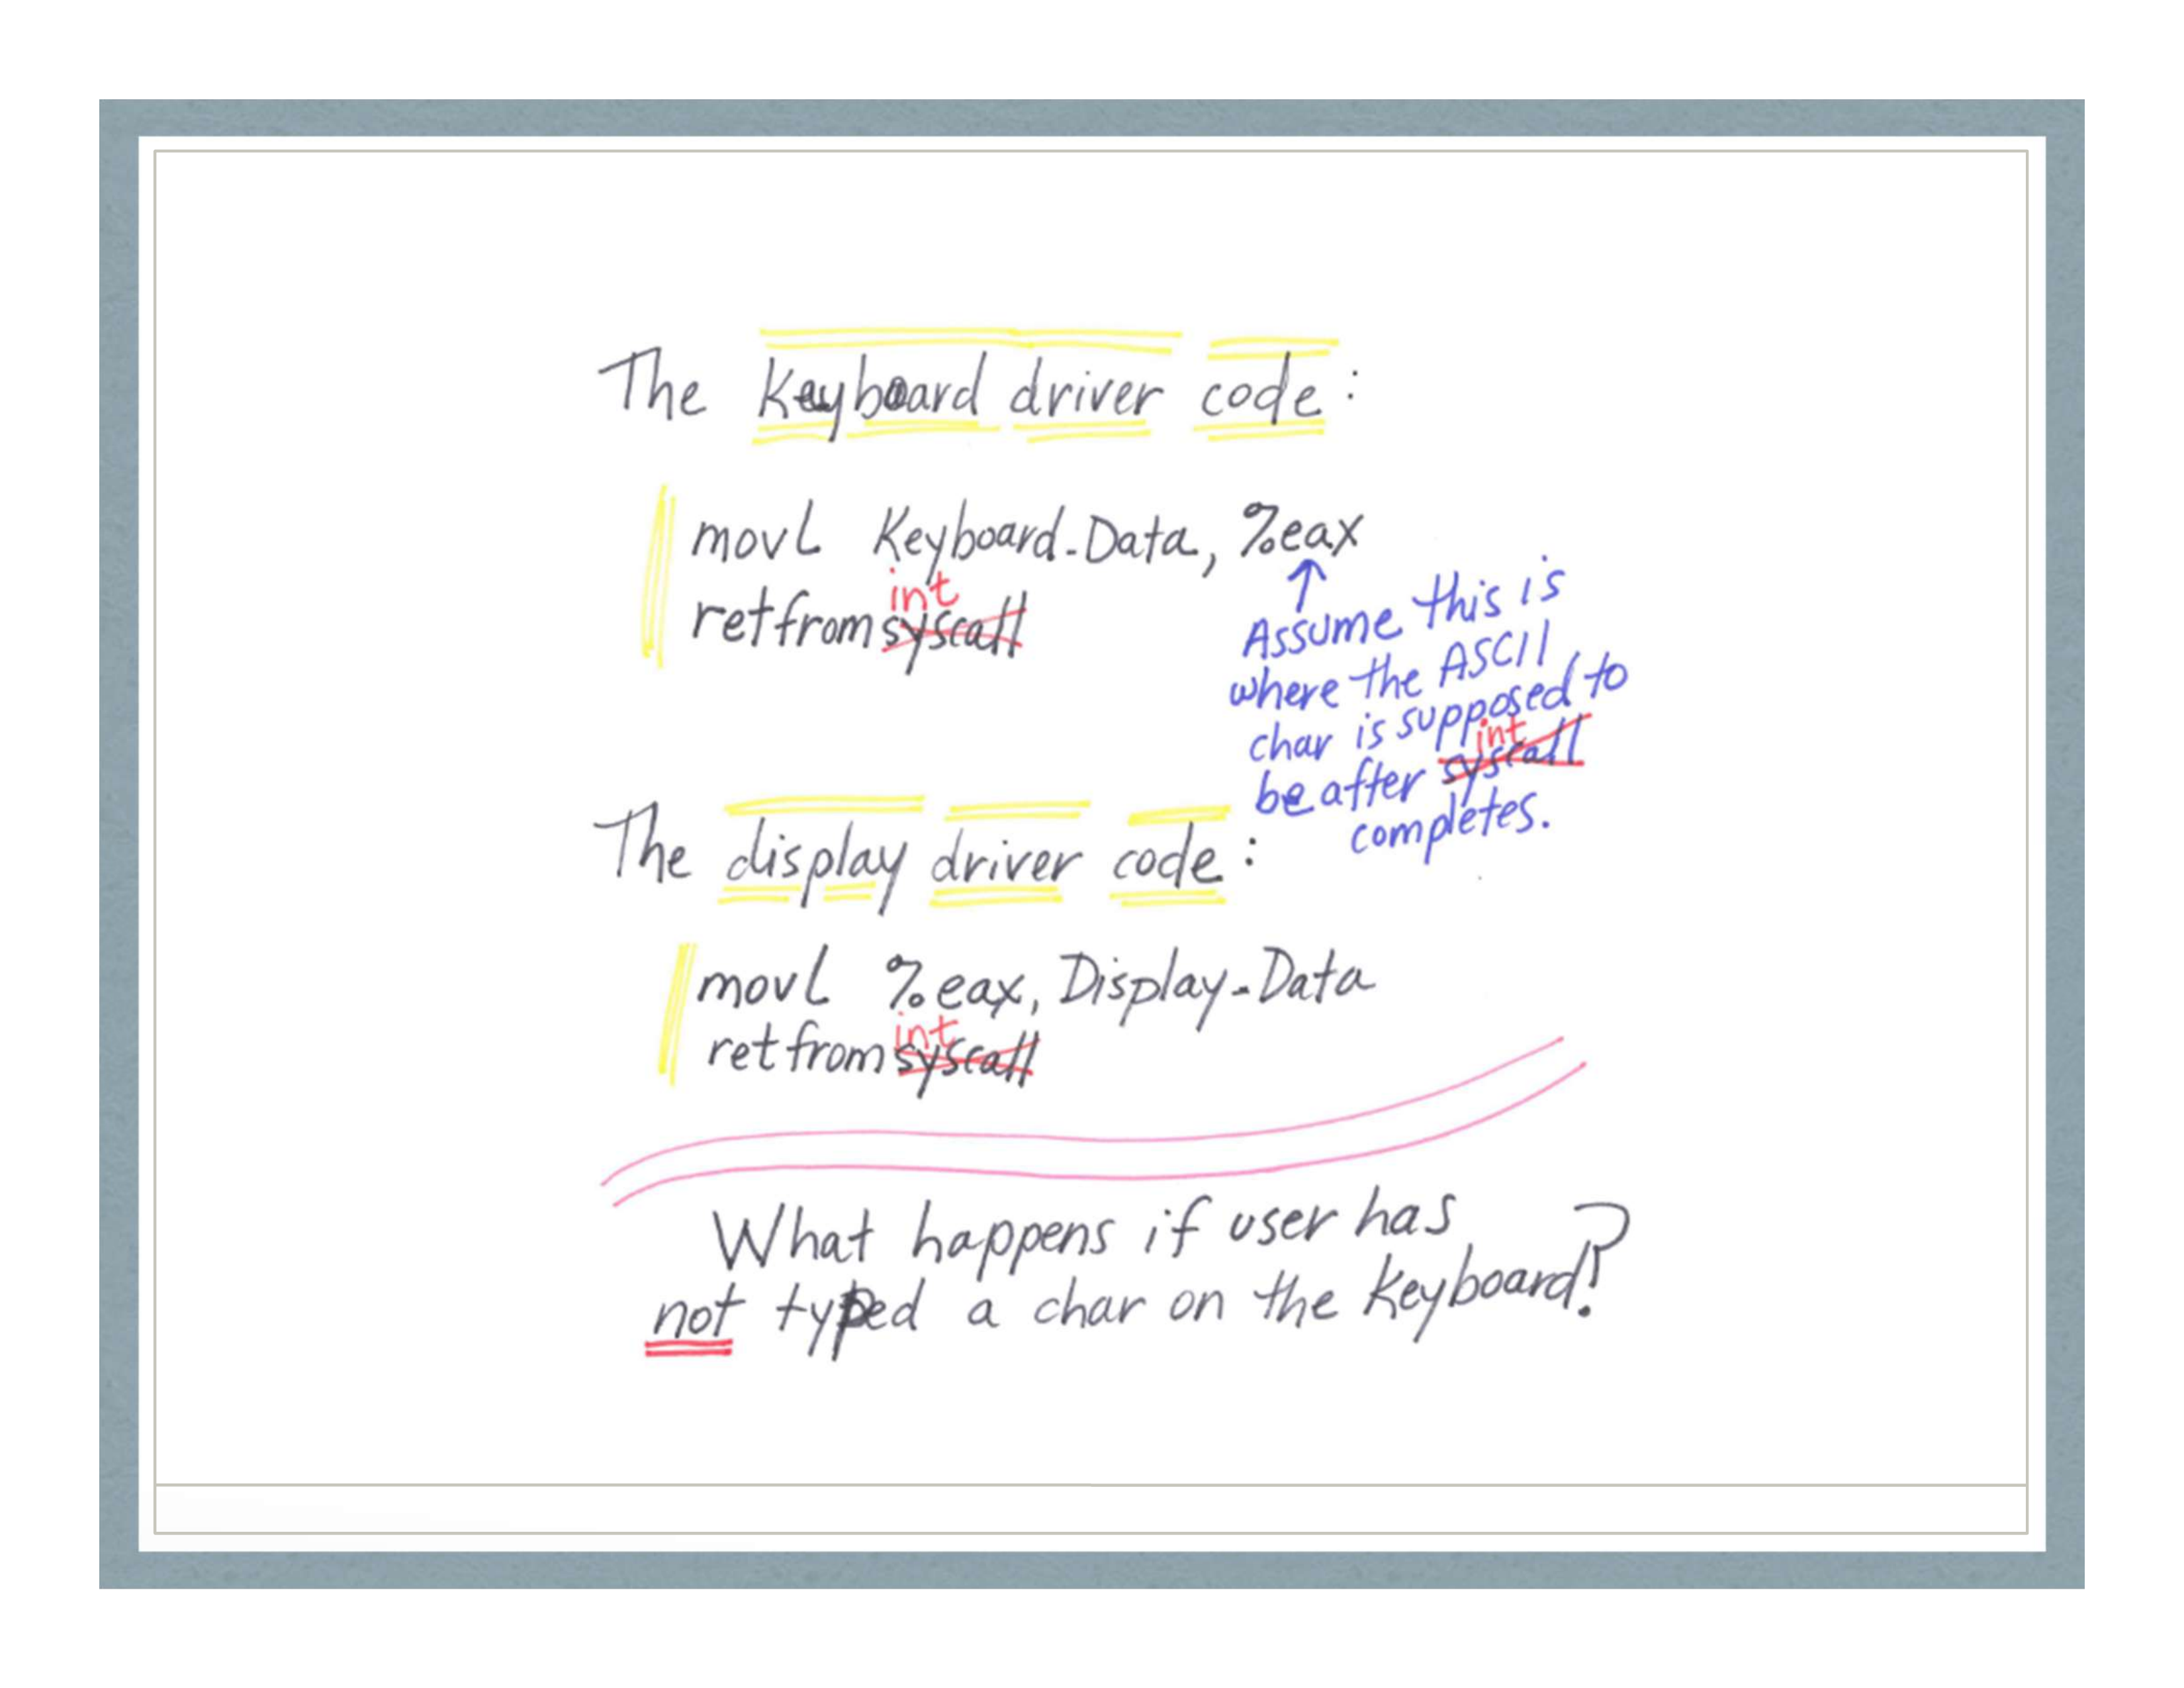 The Keyboard driver code:
movl Keyboard_Data, %eax
int
retfrom syscall
Assume this is
where the ASCII
char is supposed to
int
be after syscall
completes.
The display driver code:
movl %eax, Display_Data
int
retfrom syscall
What happens if user has
not typed a char on the Keyboard?